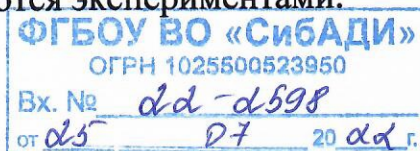 ются экспериментами.
ФГБОУ ВО «СибАДИ»
ОГРН 1025500523950
Вх. № 22-2598
от 25 07 20 22 г.